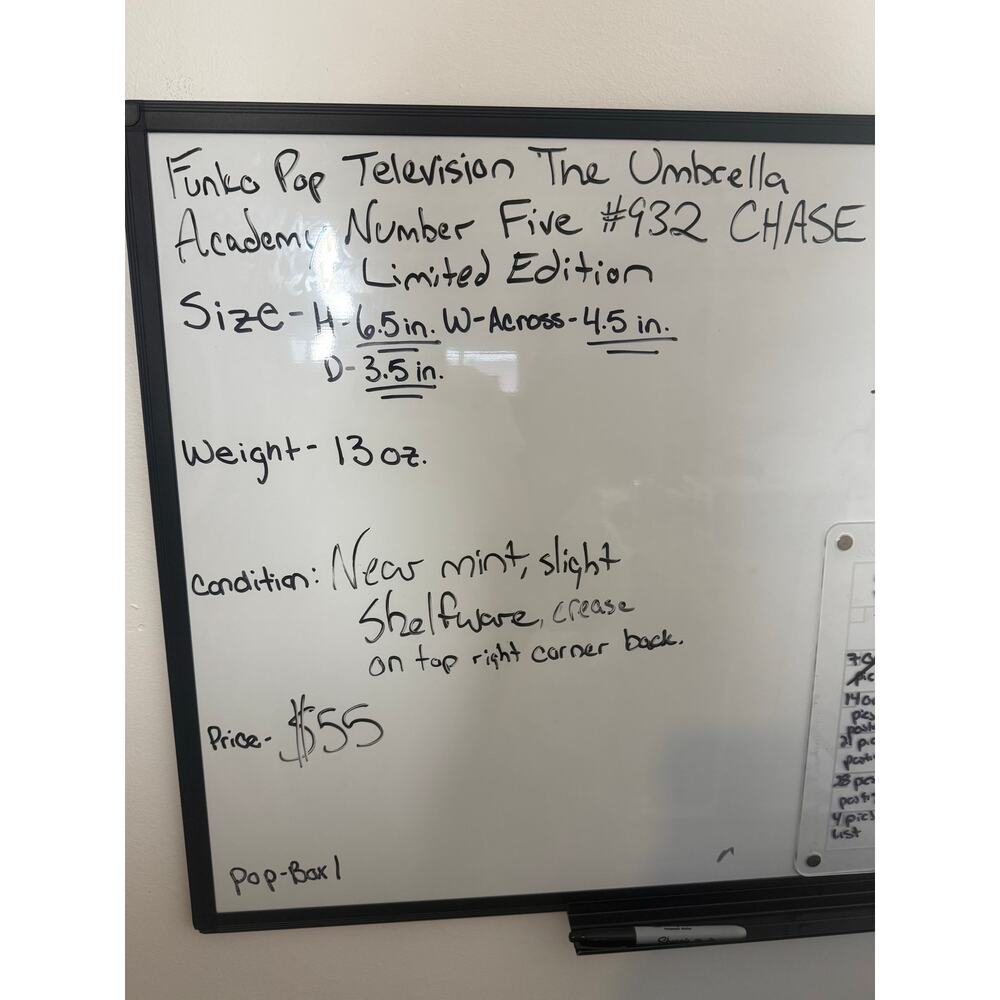 Funko Pop Television The Umbrella
Academy Number Five #932 CHASE
Limited Edition
Size - H - 6.5 in. W-Across - 4.5 in.
D - 3.5 in.
Weight - 13 oz.
Condition: Near mint, slight
Shelfware, crease
on top right corner back.
Price - $55
Pop-Box 1
14
pics
21 pic
28 pcs
4 pics
list